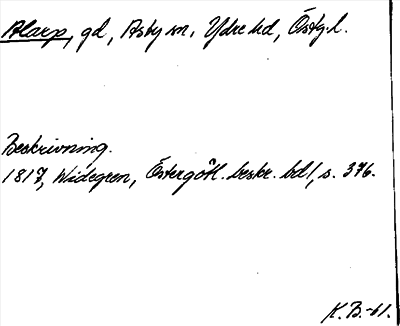 Alarp, gd, Asby sn, Ydre hd, Östg.l.
Beskrivning.
1817, Widegren, Östergötl. beskr. bd 1, s. 376.
K.B.-61.